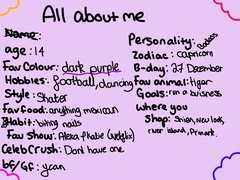 All about me
Name:
age: 14
Fav Colour: dark purple
Hobbies: football, dancing
Style: Skater
Fav food: anything mexican
Habit: biting nails
Fav Show: Alexa & Katie (Netflix)
Celeb Crush: Dont have one
bf/Gf:
Personality: Badass
Zodiac: Capricorn
B-day: 27 December
Fav animal: tiger
Goals: run a buisness
where you
Shop: Shien, new look,
river island, Primark.